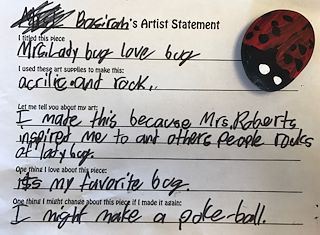 Basirah's Artist Statement
I titled this piece
Mrs. Lady bug love bug
I used these art supplies to make this:
acrilic and rock.
Let me tell you about my art:
I made this because Mrs. Roberts
inspired me to and others people rocks
at lady bug.
One thing I love about this piece:
its my favorite bug.
One thing I might change about this piece if I made it again:
I might make a poke-ball.